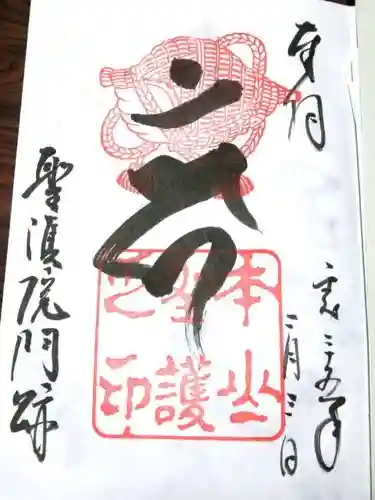 奉拝
二十五年
二月三日
本山
聖護
之印
聖護院門跡